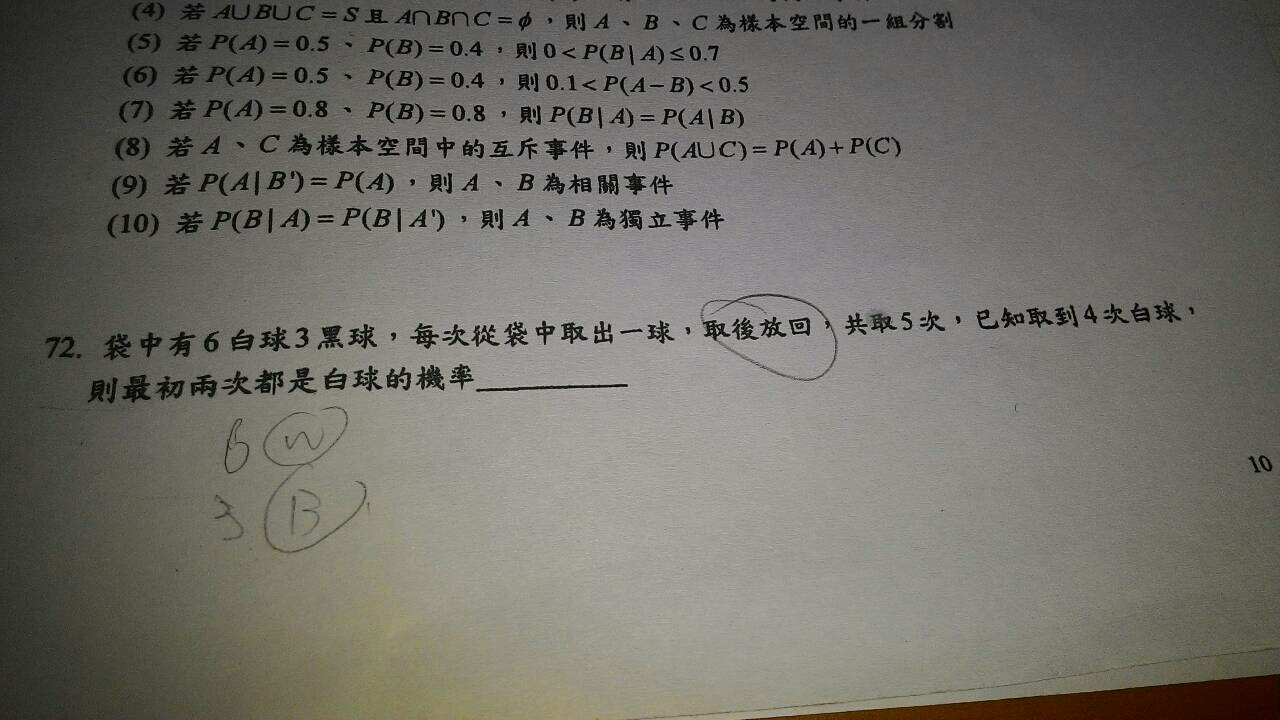 (4) 若 A∪B∪C = S 且 A∩B∩C = ϕ，則 A、B、C 為樣本空間的一組分割
(5) 若 P(A) = 0.5、P(B) = 0.4，則 0 < P(B | A) ≤ 0.7
(6) 若 P(A) = 0.5、P(B) = 0.4，則 0.1 < P(A − B) < 0.5
(7) 若 P(A) = 0.8、P(B) = 0.8，則 P(B | A) = P(A | B)
(8) 若 A、C 為樣本空間中的互斥事件，則 P(A∪C) = P(A) + P(C)
(9) 若 P(A | B') = P(A)，則 A、B 為相關事件
(10) 若 P(B | A) = P(B | A')，則 A、B 為獨立事件
72. 袋中有 6 白球 3 黑球，每次從袋中取出一球，取後放回，共取 5 次，已知取到 4 次白球，
則最初兩次都是白球的機率__________
6 W
3 B
10